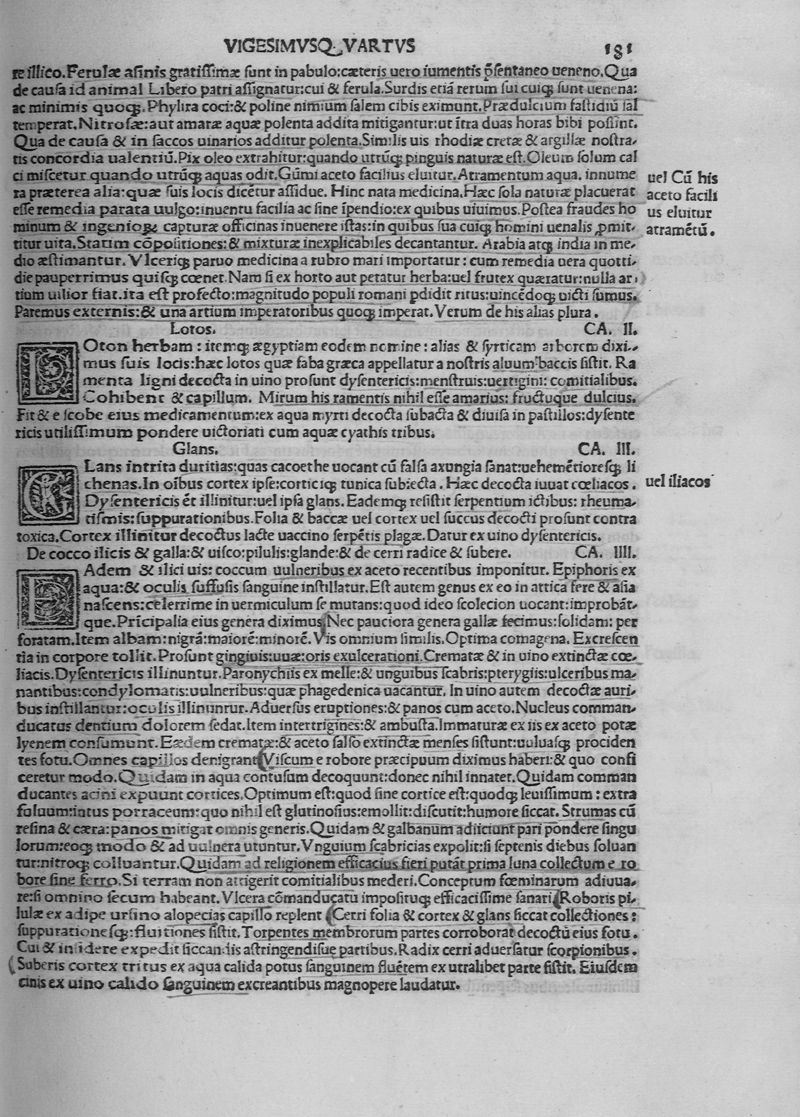 VIGESIMVSQ. VARTVS 181
re illico.Ferulæ asinis gratissimæ sunt in pabulo:cæteris uero iumentis p̄sentaneo ueneno.Qua
de causa id animal Libero patri assignatur:cui & ferula.Surdis etiā rerum sui cuiq; sunt uenena:
ac minimis quoq;.Phylira coci:& poline nimium salem cibis eximunt.Prædulcium fastidiū sal
temperat.Nitrosæ:aut amaræ aquæ polenta addita mitigantur:ut ītra duas horas bibi possint.
Qua de causa & in saccos uinarios additur polenta.Similis uis rhodiæ cretæ & argillæ nostra/
tis concordia ualentiū.Pix oleo extrahitur:quando utrūq; pinguis naturæ est.Oleum solum cal
ci miscetur quando utrūq; aquas odit.Gūmi aceto facilius eluitur.Atramentum aqua. innume
ra præterea alia:quæ suis locis dicētur assidue. Hinc nata medicina.Hæc sola naturæ placuerat
esse remedia parata uulgo:inuentu facilia ac sine īpendio:ex quibus uiuimus.Postea fraudes ho
minum & ingeniorꝫ capturæ officinas inuenere istas:in quibus sua cuiq; homini uenalis ꝓmit/
titur uita.Statim cōpositiones:& mixturæ inexplicabiles decantantur. Arabia atq; india in me/
dio æstimantur. Vlceriq; paruo medicina a rubro mari importatur: cum remedia uera quotti/
die pauperrimus quisq; cœnet.Nam si ex horto aut petatur herba:uel frutex quæratur:nulla ar/
tium uilior fiat.ita est profecto:magnitudo populi romani pdidit ritus:uincēdoq; uicti sumus.
Paremus externis:& una artium imperatoribus quoq; imperat.Verum de his alias plura.
uel Cū his
aceto facili
us eluitur
atramētū.
Lotos. CA. II.
LOton herbam: itemq; ægyptiam eodem nomine: alias & syrticam arborem dixi/
mus suis locis:hæc lotos quæ faba græca appellatur a nostris aluum baccis sistit. Ra
menta ligni decocta in uino prosunt dysentericis:menstruis:uertigini: comitialibus.
Cohibent & capillum. Mirum his ramentis nihil esse amarius: fructuque dulcius.
Fit & e scobe eius medicamentum:ex aqua myrti decocta subacta & diuisa in pastillos:dysente
ricis utilissimum pondere uictoriati cum aquæ cyathis tribus.
Glans. CA. III.
GLans intrita duritias:quas cacoethe uocant cū salsa axungia sanat:uehemētioresq; li
chenas.In oībus cortex ipse:corticiq; tunica subiecta. Hæc decocta iuuat cœliacos.
Dysentericis ēt illinitur:uel ipsa glans. Eademq; resistit serpentium ictibus: rheuma/
tismis:suppurationibus.Folia & baccæ uel cortex uel succus decocti prosunt contra
toxica.Cortex illinitur decoctus lacte uaccino serpētis plagæ.Datur ex uino dysentericis.
uel iliacos
De cocco ilicis & galla:& uisco:pilulis:glande:& de cerri radice & subere. CA. IIII.
EAdem & ilici uis: coccum uulneribus ex aceto recentibus imponitur. Epiphoris ex
aqua:& oculis suffusis sanguine instillatur.Est autem genus ex eo in attica fere & asia
nascens:celerrime in uermiculum se mutans:quod ideo scolecion uocant:improbāt/
que.Pricipalia eius genera diximus.Nec pauciora genera gallæ fecimus:solidam: per
foratam.Item albam:nigrā:maiorē:minorē. Vis omnium similis.Optima comagena. Excrescen
tia in corpore tollit. Prosunt gingiuis:uuæ:oris exulcerationi.Crematæ & in uino extinctæ cœ/
liacis.Dysentericis illinuntur.Paronychiis ex melle:& unguibus scabris:pterygiis:ulceribus ma/
nantibus:condylomatis:uulneribus:quæ phagedenica uacantur. In uino autem decoctæ auri/
bus instillantur:oculis illinuntur.Aduersus eruptiones:& panos cum aceto.Nucleus comman/
ducatus dentium dolorem sedat.Item intertrigines:& ambusta.Immaturæ ex iis ex aceto potæ
lyenem consumunt. Eædem crematæ:& aceto salso extinctæ menses sistunt:uuluasq; prociden
tes fotu.Omnes capillos denigrant.Viscum e robore præcipuum diximus haberi:& quo confi
ceretur modo.Quidam in aqua contusam decoquunt:donec nihil innatet.Quidam comman
ducantes acini expuunt cortices.Optimum est:quod sine cortice est:quodq; leuissimum: extra
fuluum:intus porraceum:quo nihil est glutinosius:emollit:discutit:humore siccat. Strumas cū
resina & cæra:panos mitigat omnis generis.Quidam & galbanum adiiciunt pari pondere singu
lorum:eoq; modo & ad uulnera utuntur. Vnguium scabricias expolit:si septenis diebus soluan
tur:nitroq; colluantur.Quidam ad religionem efficacius fieri putāt prima luna collectum e ro
bore sine ferro.Si terram non attigerit comitialibus mederi.Conceptum fœminarum adiuua/
re:si omnino secum habeant.Vlcera cōmanducatū impositūq; efficacissime sanari.Roboris pi/
lulæ ex adipe ursino alopecias capillo replent.Cerri folia & cortex & glans siccat collectiones:
suppurationesq;:fluitiones sistit. Torpentes membrorum partes corroborat decoctū eius fotu.
Cui & insidere expedit siccandis astringendisue partibus. Radix cerri aduersatur scorpionibus.
Suberis cortex tritus ex aqua calida potus sanguinem fluētem ex utralibet parte sistit. Eiusdem
cinis ex uino calido sanguinem excreantibus magnopere laudatur.